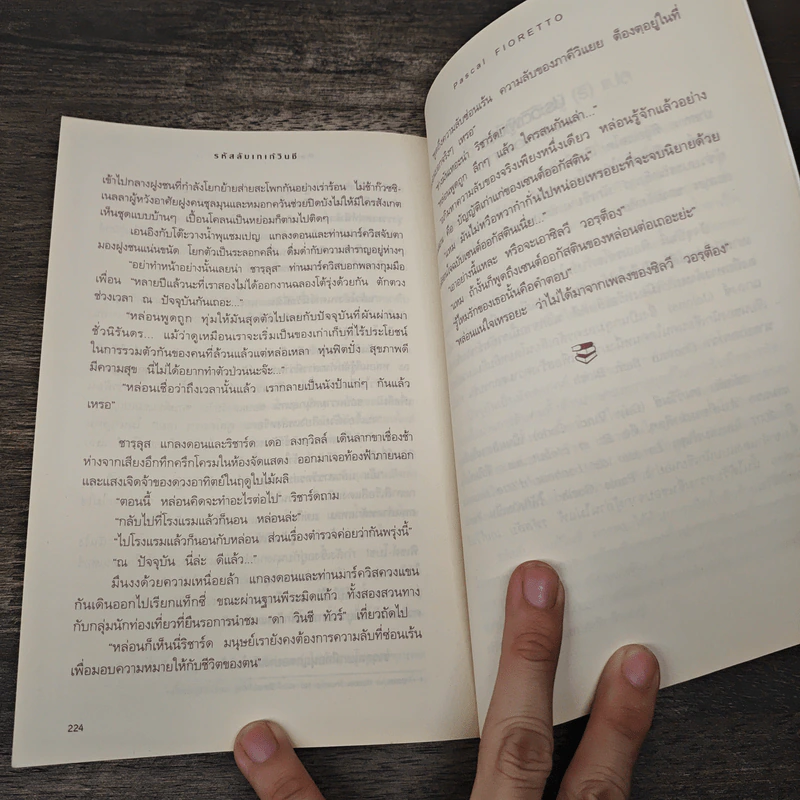 รหัสลับเกเก้วินชี
เข้าไปกลางฝูงชนที่กำลังโยกย้ายส่ายสะโพกกันอย่างเร่าร้อน ไม่ช้าก๊วซซิ-
เนลลาผู้หวังอาศัยฝูงคนชุลมุนและหมอกควันช่วยปิดบังไม่ให้มีใครสังเกต
เห็นชุดแบบบ้านๆ เปื้อนโคลนเป็นหย่อมก็ตามไปติดๆ
เอนอิงกับโต๊ะวางน้ำพุแชมเปญ แกลงดอนและท่านมาร์ควิสจับตา
มองฝูงชนแน่นขนัด โยกตัวเป็นระลอกคลื่น ดื่มด่ำกับความสำราญอยู่ห่างๆ
"อย่าทำหน้าอย่างนั้นเลยน่า ชารุลุส" ท่านมาร์ควิสบอกพลางกุมมือ
เพื่อน "หลายปีแล้วนะที่เราสองไม่ได้ออกงานฉลองโต้รุ่งด้วยกัน ตักตวง
ช่วงเวลา ณ ปัจจุบันกันเถอะ..."
"หล่อนพูดถูก ทุ่มให้มันสุดตัวไปเลยกับปัจจุบันที่ผันผ่านมา
ชั่วนิรันดร... แม้ว่าดูเหมือนเราจะเริ่มเป็นของเก่าเก็บที่ไร้ประโยชน์
ในการรวมตัวกันของคนที่ล้วนแล้วแต่หล่อเหลา หุ่นฟิตปั๋ง สุขภาพดี
มีความสุข นี่ไม่ได้อยากทำตัวป่วนนะจ๊ะ..."
"หล่อนเชื่อว่าถึงเวลานั้นแล้ว เรากลายเป็นนังป้าแก่ๆ กันแล้ว
เหรอ"
ชารุลุส แกลงดอนและริชาร์ด เดอ ลงกุวิลล์ เดินลากขาเชื่องช้า
ห่างจากเสียงอึกทึกครึกโครมในห้องจัดแสดง ออกมาเจอท้องฟ้าภายนอก
และแสงเจิดจ้าของดวงอาทิตย์ในฤดูใบไม้ผลิ
"ตอนนี้ หล่อนคิดจะทำอะไรต่อไป" ริชาร์ดถาม
"กลับไปที่โรงแรมแล้วก็นอน หล่อนล่ะ"
"ไปโรงแรมแล้วก็นอนกับหล่อน ส่วนเรื่องตำรวจค่อยว่ากันพรุ่งนี้"
"ณ ปัจจุบัน นี่ล่ะ ดีแล้ว..."
มึนงงด้วยความเหนื่อยล้า แกลงดอนและท่านมาร์ควิสควงแขน
กันเดินออกไปเรียกแท็กซี่ ขณะผ่านฐานพีระมิดแก้ว ทั้งสองสวนทาง
กับกลุ่มนักท่องเที่ยวที่ยืนรอการนำชม "ดา วินชี ทัวร์" เที่ยวถัดไป
"หล่อนก็เห็นนี่ริชาร์ด มนุษย์เรายังคงต้องการความลับที่ซ่อนเร้น
เพื่อมอบความหมายให้กับชีวิตของตน"
224
Pascal FIORETTO
ความลับซ่อนเร้น ความลับของภาคีวิแยย ต้องตอยู่ในที่
เหรอ"
ริชาร์ด!"
หล่อนพูดถูก ลึกๆ แล้ว ใครสนกันเล่า..."
ความลับของจริงเพียงหนึ่งเดียว หล่อนรู้จักแล้วอย่าง
คือ บัญญัติเก่าแก่ของเซนต์ออกัสติน"
มันไม่หรือหวากำกันไปหน่อยเหรอยะที่จะจบนิยายด้วย
เซนต์ออกัสตินเนี่ย..."
แหละ หรือจะเอาซิลวี วอรฺต็อง"
ถ้างั้นก็พูดถึงเซนต์ออกัสตินของหล่อนต่อเถอะย่ะ"
รู้ไหมรักของเธอนั้นคือคำตอบ"
"หล่อนแน่ใจเหรอยะ ว่าไม่ได้มาจากเพลงของซิลวี วอรฺต็อง"